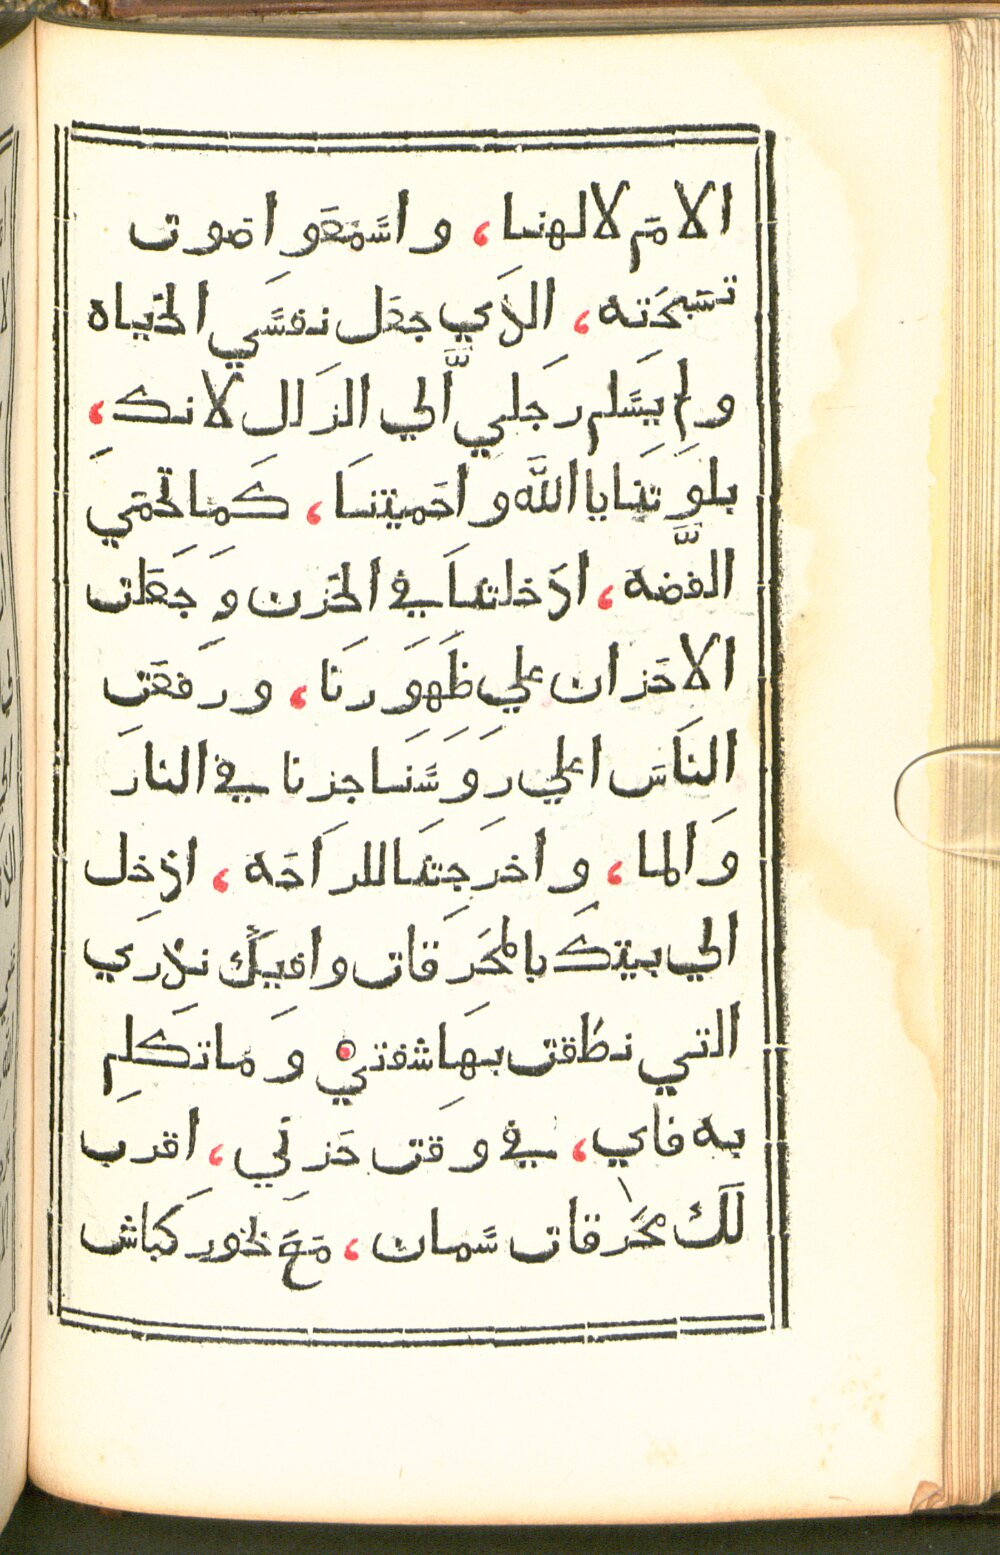 الامم لالهنا، واسمعوا صوت
تسبحته، الذي جعل نفسي الحياه
ولم يسلم رجلي الي الزلل لانك،
بلوتنا يا الله واحميتنا، كما تحمي
الفضه، ادخلتنا في الحزن وجعلت
الاحزان علي ظهورنا، ورفعت
الناس اعلي روسنا جزنا في النار
والما، واخرجتنا للراحه، ادخل
الي بيتك بالمحرقات واوفيك نذري
التي نطقت بها شفتي ۰ وما تكلم
به فاي، في وقت حزني، اقرب
لك محرقات سمان، مع بخور كباش